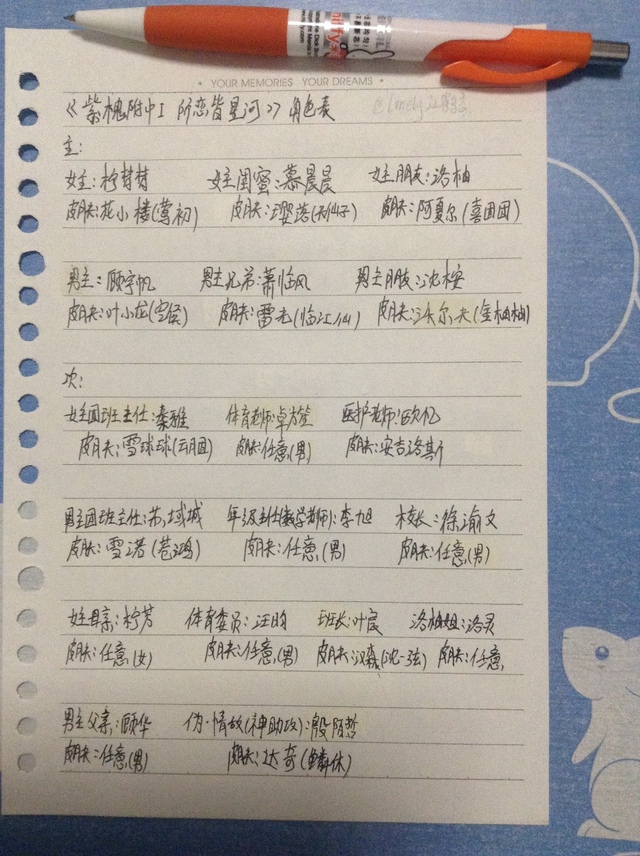 YOUR MEMORIES YOUR DREAMS
《紫槐附中I 所恋皆星河》角色表
主:
女主:柠梦梦 女主闺蜜:慕晨晨 女主朋友:洛柚
皮肤:花小楼(莺初) 皮肤:璎珞 皮肤:阿夏尔(喜团团)
男主:顾宇帆 男主兄弟:萧临风 男主朋友:沈桉
皮肤:叶小龙 皮肤:雷尤(临江仙) 皮肤:沃尔夫(金柚柚)
次:
女主团班主任:秦雅 体育老师:卓 医护老师:欧亿
皮肤:雪球球 皮肤:任意(男) 皮肤:安吉洛斯
男主团班主任:苏域城 年级主任(数学老师):李旭 校长:徐渝文
皮肤:雪诺(苍鸿) 皮肤:任意(男) 皮肤:任意(男)
女主母亲:柠芳 体育委员:汪昀 班长:叶宸 洛柚姐:洛灵
皮肤:任意(女) 皮肤:任意(男) 皮肤:汉森(沈一弦) 皮肤:任意
男主父亲:顾华 伪·情敌(神助攻):殷陌哲
皮肤:任意(男) 皮肤:达奇(鳞休)